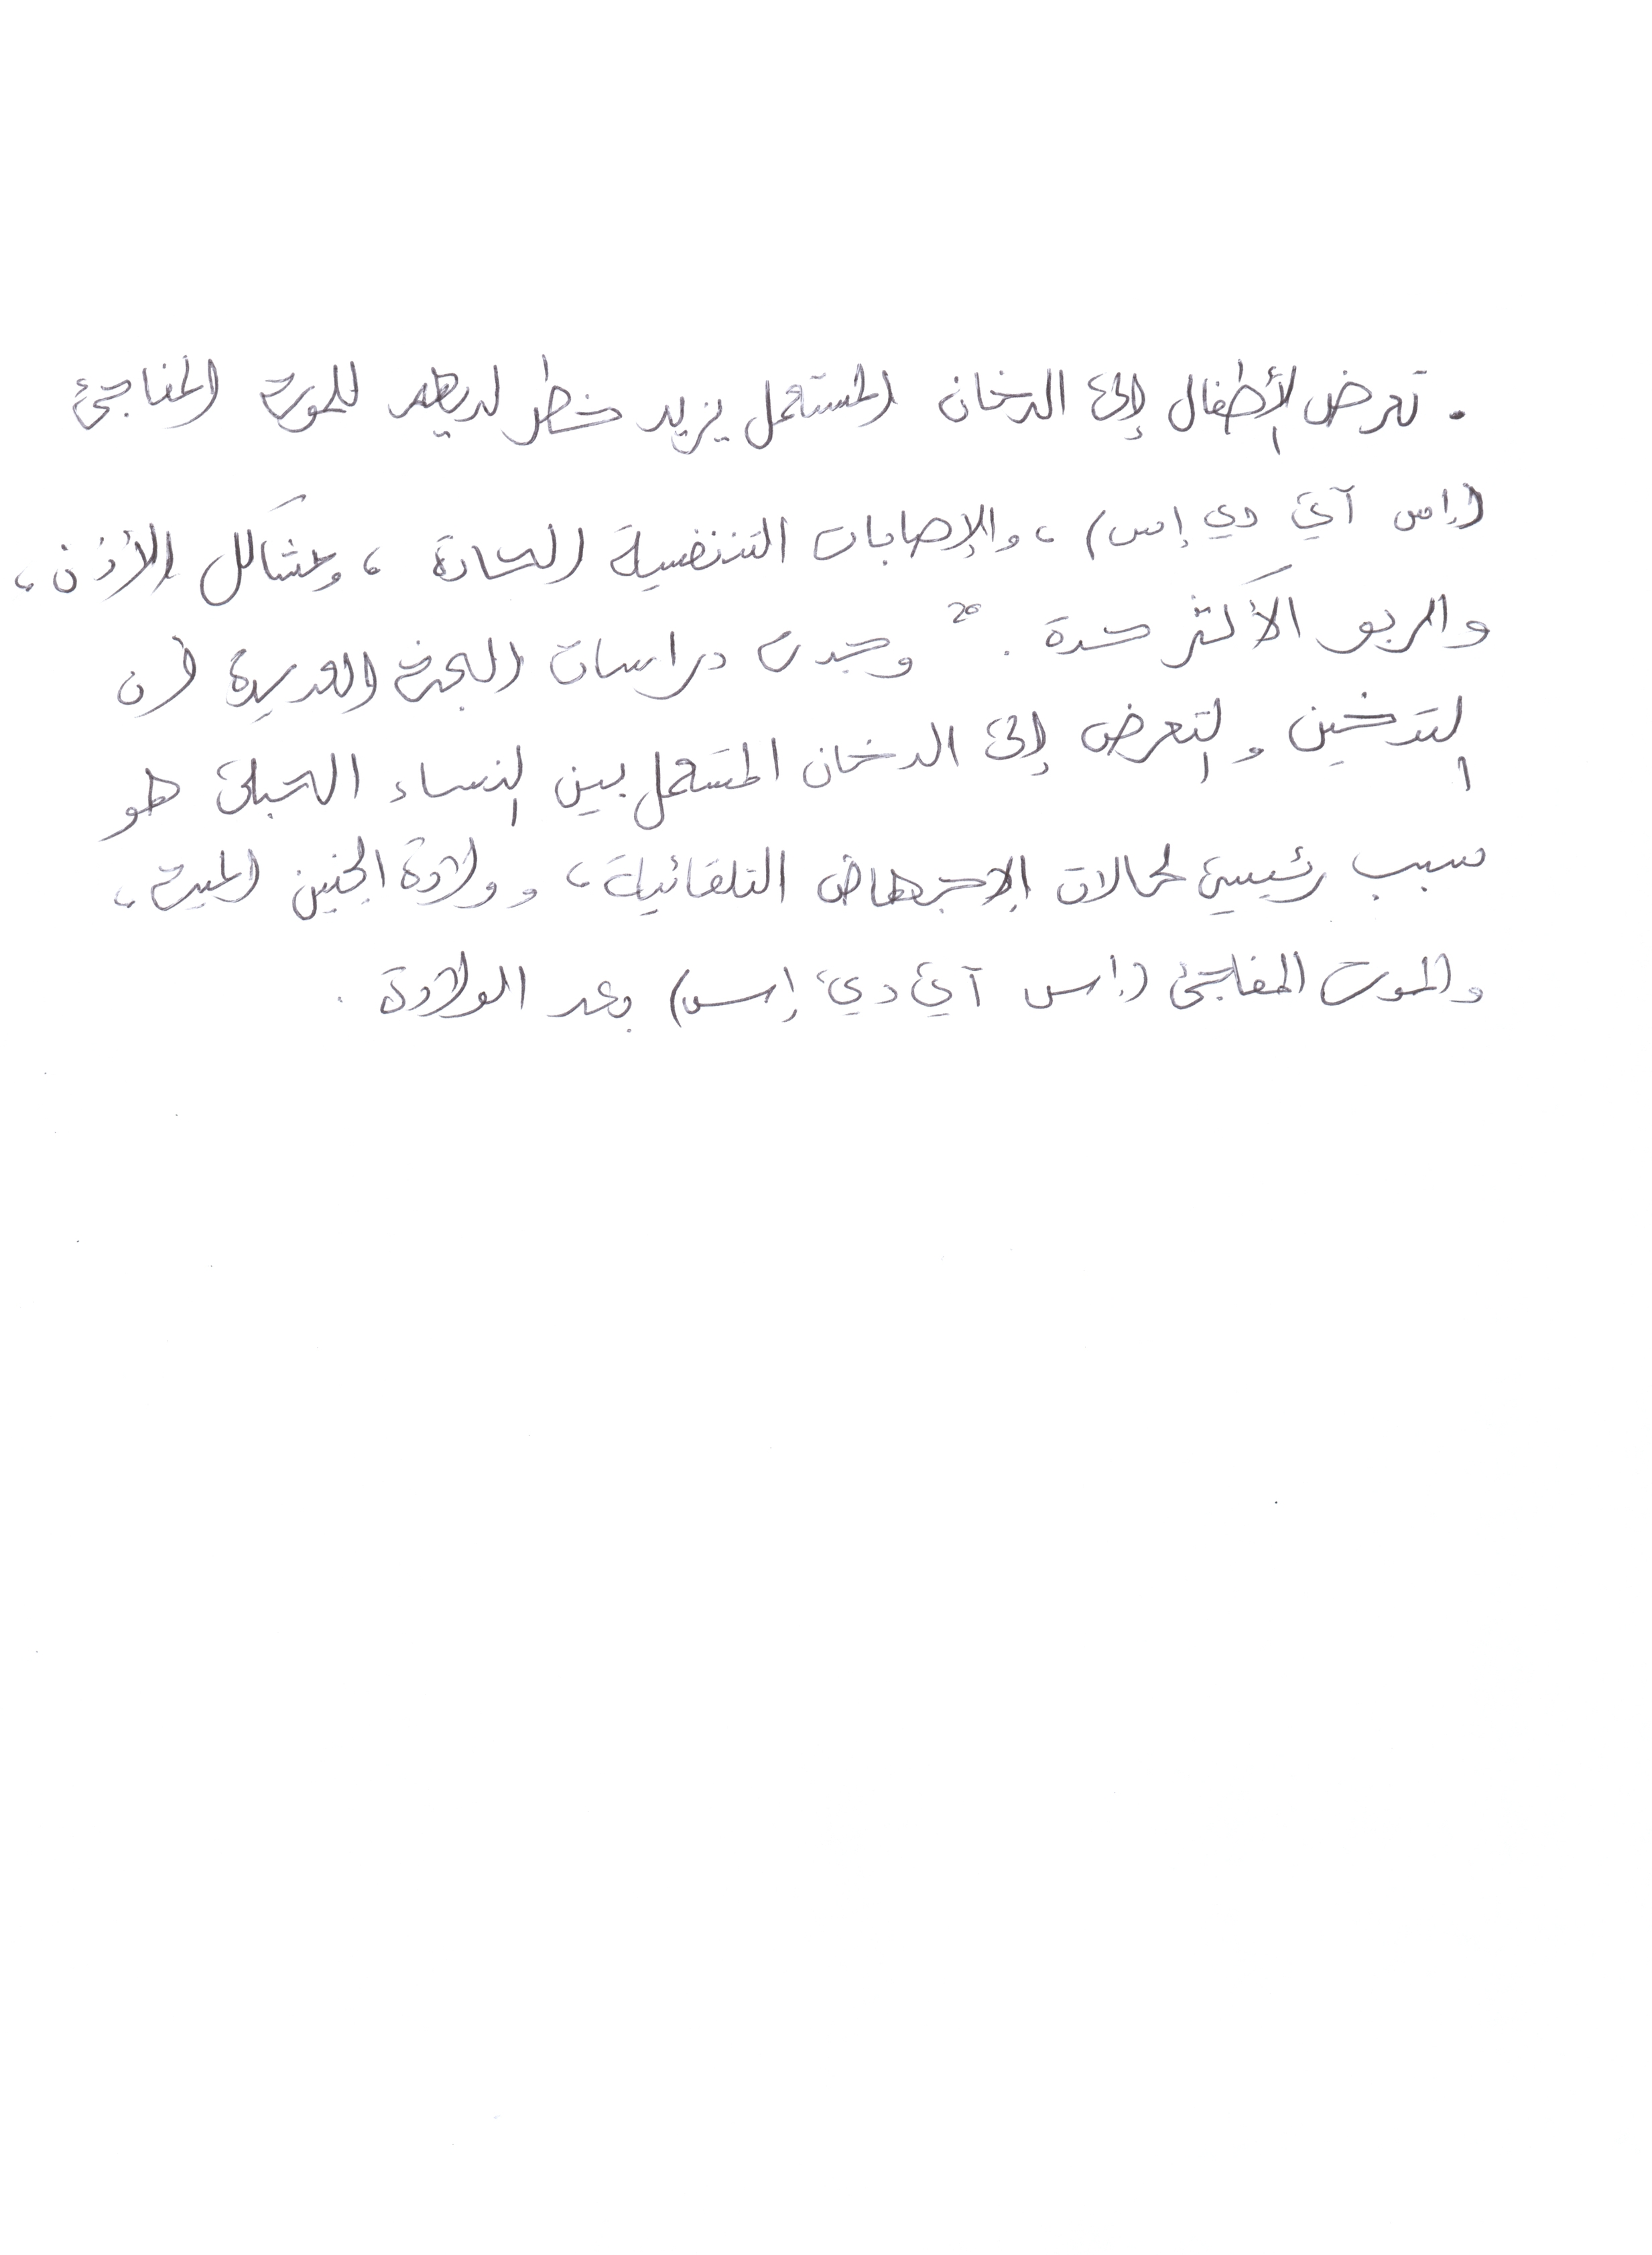 . تعرض الأطفال إلى الدخان المستعمل يزيد خطر لديهم للموت المفاجئ
(إس آي دي إس)، والإصابات التنفسية الحادة، ومشاكل الأذن،
والربو الأكثر حدة. 20 وجدت دراسات البحث العديدة أن
التدخين والتعرض إلى الدخان المستعمل بين النساء الحبلى هو
سبب رئيسي لحالات الإجهاض التلقائية، وولادة الجنين الميت،
والموت المفاجئ (إس آي دي إس) بعد الولادة.